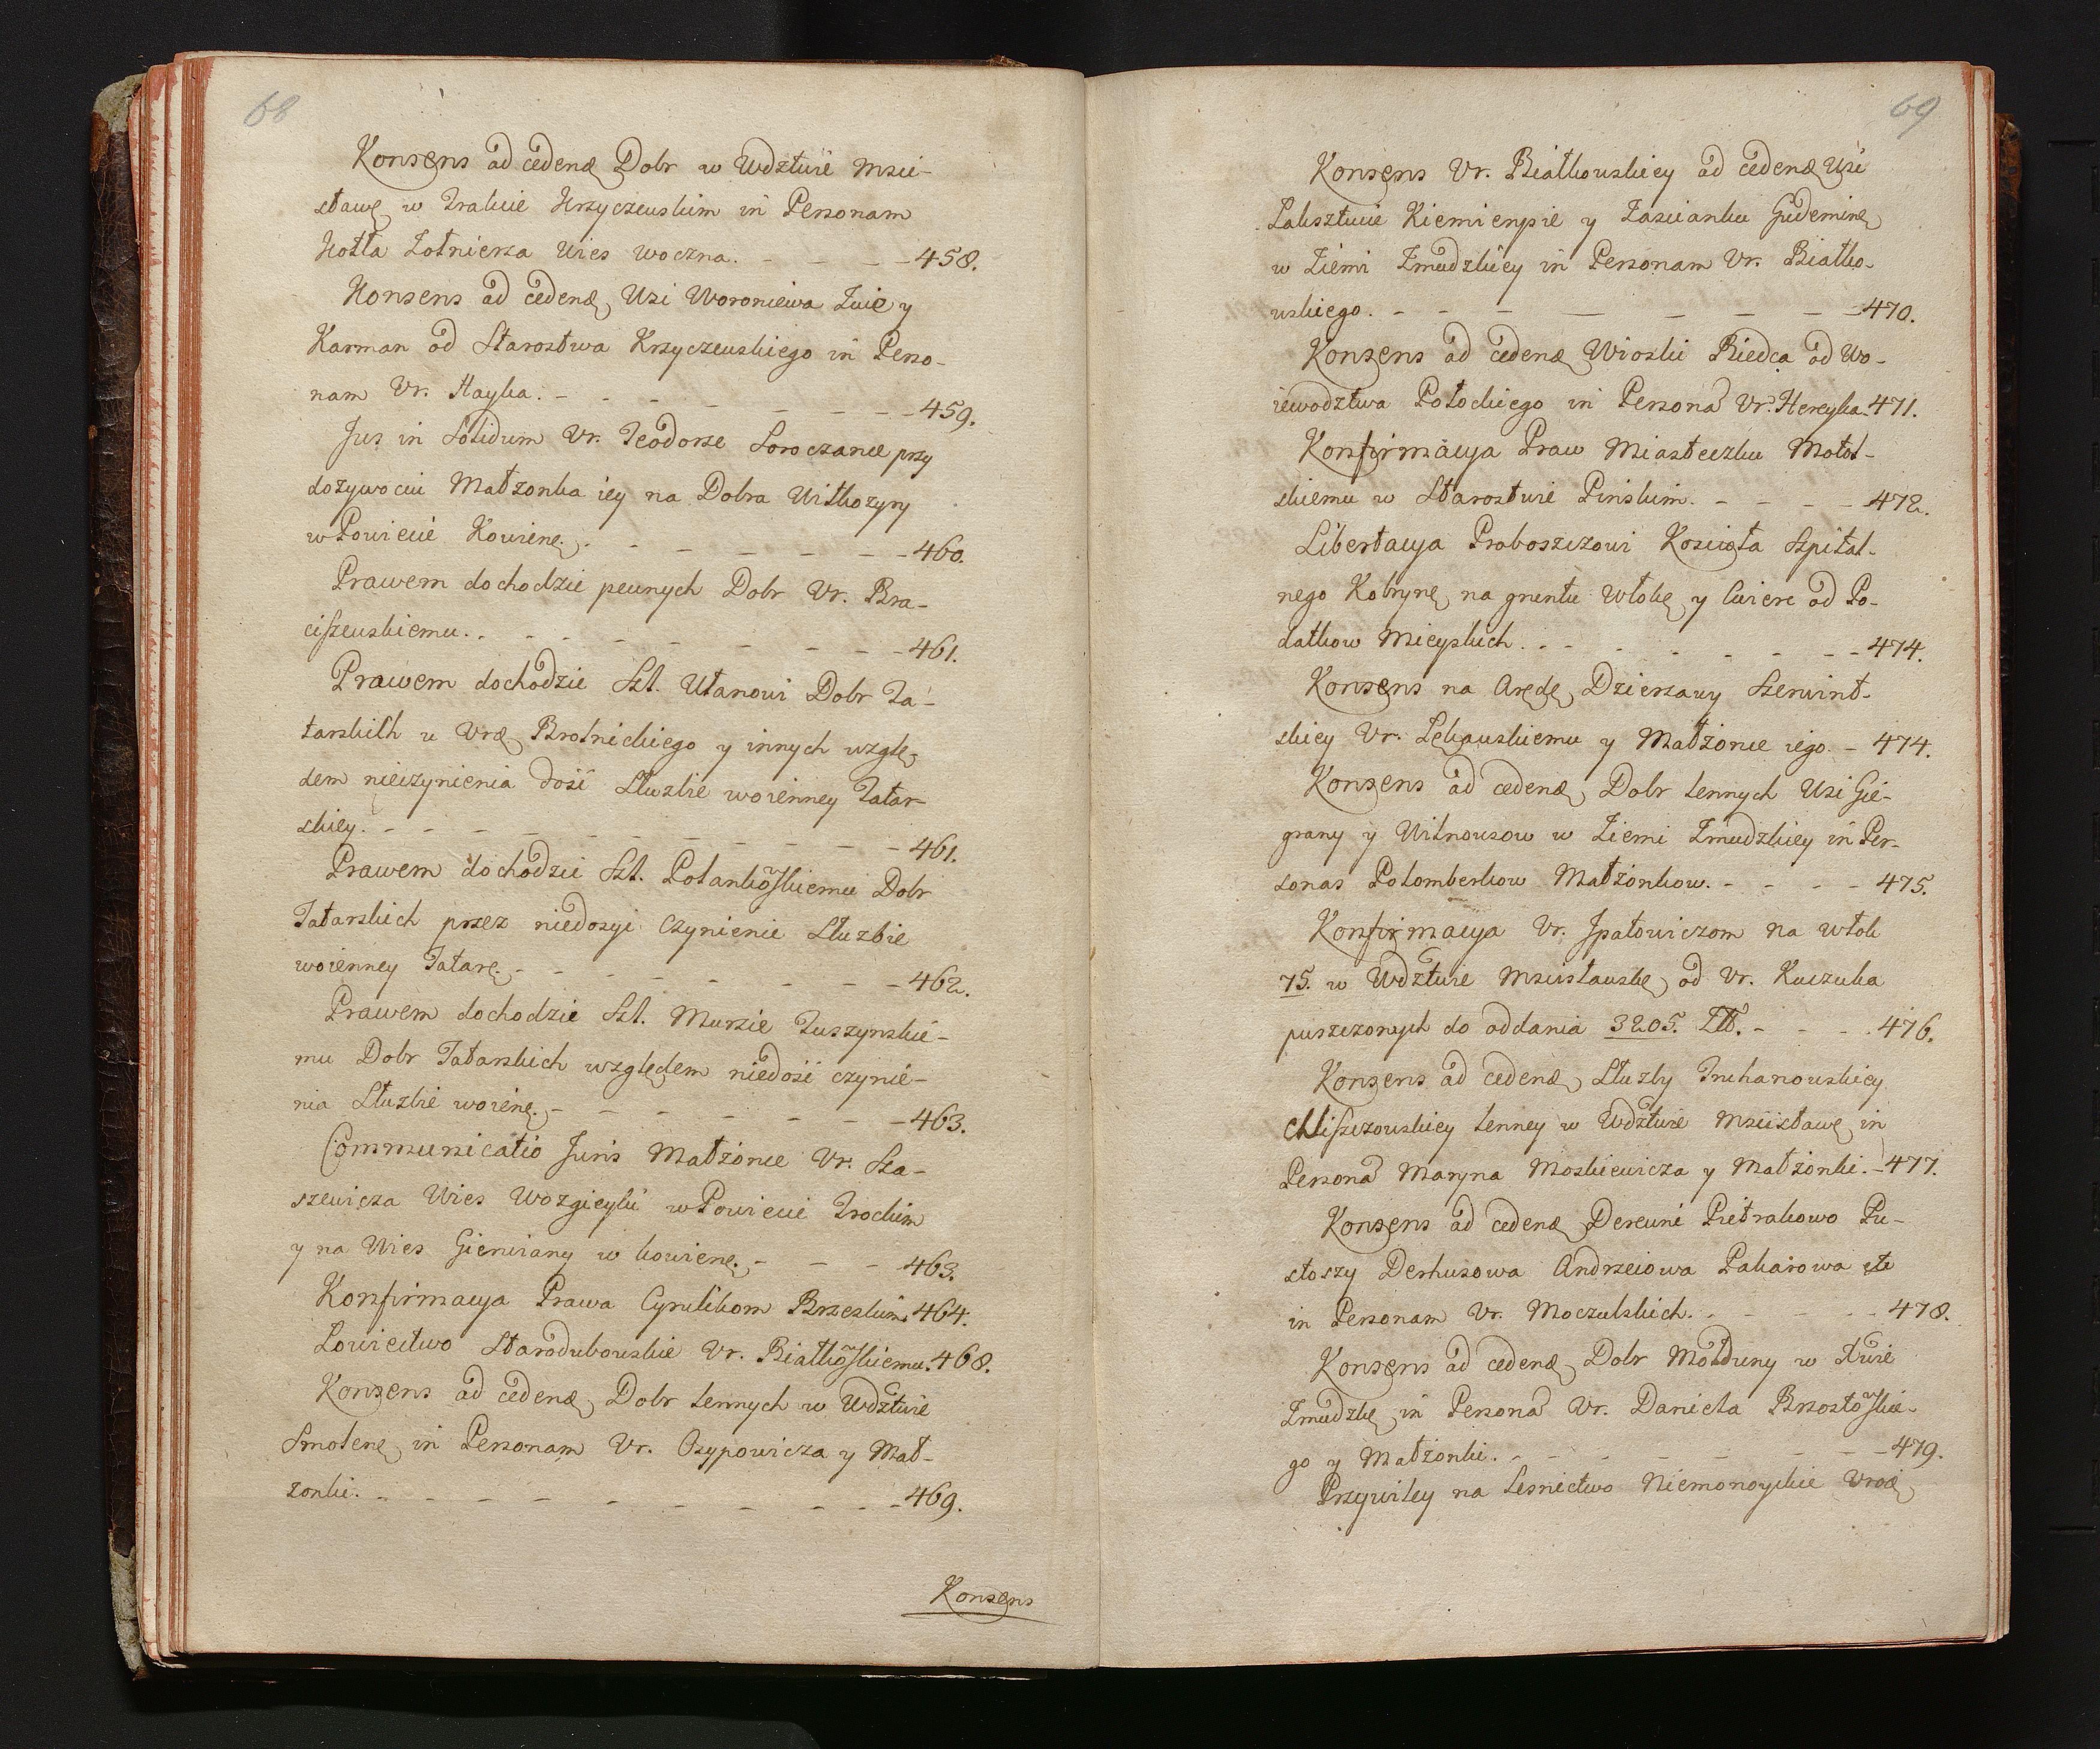 68
Konsens ad cedend Dobr w Wdztwie Msci-
sławę w Trakcie Krzyczewskim in Personam
Kotła Zołnierza Wies Woczna. - - - - 458.
Konsens ad cedend Wsi Woroniewa Zuie y
Karman od Starostwa Krzyczewskiego in Perso-
nam Vr. Hayka. - - - - - - - 459.
Jus in Solidum Vr. Teodorze Soroczance przy
dozywociu Małzonka iey na Dobra Witkozyry
w Powiecie Kowienę. - - - - - - 460.
Prawem dochodzic pewnych Dobr Vr. Bra-
ciszewskiemu. - - - - - - - 461.
Prawem dochodzie Szl. Ułanowi Dobr Ta-
tarskich u Vrd Brolnickiego y innych wzglę
dem nieczynienia dosć Słuzbie woienney Tatar-
skiey. - - - - - - - - 461.
Prawem dochodzic Szl. Połankoskiemu Dobr
Tatarskich przez niedosyć czynienie Słuzbie
woienney Tatarę. - - - - - - 462.
Prawem dochodzie Szl. Murzie Tuszynskie-
mu Dobr Tatarskich względem niedosć czynie-
nia Słuzbie woienę. - - - - - - 463.
Communicatio Juris Małżonce Vr. Sza-
szewicza Wies Wozgieyki w Powiecie Trockim
y na Wies Gienwiany w kowienę. - - - 463.
Konfirmacya Prawa Cyrulikom Brzeskim 464.
Łowiectwo Starodubowskie Vr. Białkoskiemu. 468.
Konsens ad cedend Dobr lennych w Wdztwie
Smolenę in Personam Vr. Osypowicza y Mał-
zonki. - - - - - - - - - 469.
Konsens
69
Konsens Vr. Białkowskiey ad cedend Wsi
Łabsztwie Kiemieńsie y Zascianku Gudeminę
w Ziemi Zmudzkiey in Personam Vr. Białko-
wskiego. - - - - - - - 470.
Konsens ad cedend Wioski Biedca od Wo-
iewodztwa Połockiego in Persona Vr. Hereyka 471.
Konfirmacya Praw Miasteczku Motol-
skiemu w Starostwie Pinskim. - - - - 472.
Libertacya Proboszczowi Kościoła Szpital-
nego Kobrynę na gruntu Włokę y cwierc od Po-
datkow Mieyskich. - - - - - - 474.
Konsens na Arędę Dzierzawy Szerwint-
skiey Vr. Łękawskiemu y Małżonce iego. - 474.
Konsens ad cedend Dobr lennych Wsi Gie-
grany y Witnowsow w Ziemi Zmudzkiey in Per-
sonas Polomberkow Małżonkow. - - - - 475.
Konfirmacya Vr. Jpatowiczom na włok
75. w Wdztwie Mscisławskę od Vr. Kuczuka
puszczonych do oddania 3205. Zł. - - - 476.
Konsens ad cedend Słuzby Truhanowskiey
Chliszczowskiey lenney w Wdztwie Mscisławę in
Persona Maryna Moskiewicza y Małżonki. - 477.
Konsens ad cedend Derewni Pietrakowo Pu-
stoszy Derhusowa Andrzeiowa Pakarowa etc
in Personam Vr. Moczulskich. - - - - 478.
Konsens ad cedend Dobr Mołduny w Xtwie
Zmudzkę in Persona Vr. Daniela Brzostoskie-
go y Małżonki. - - - - - - 479.
Przywiley na Lesnictwo Niemonoyskie Vrod